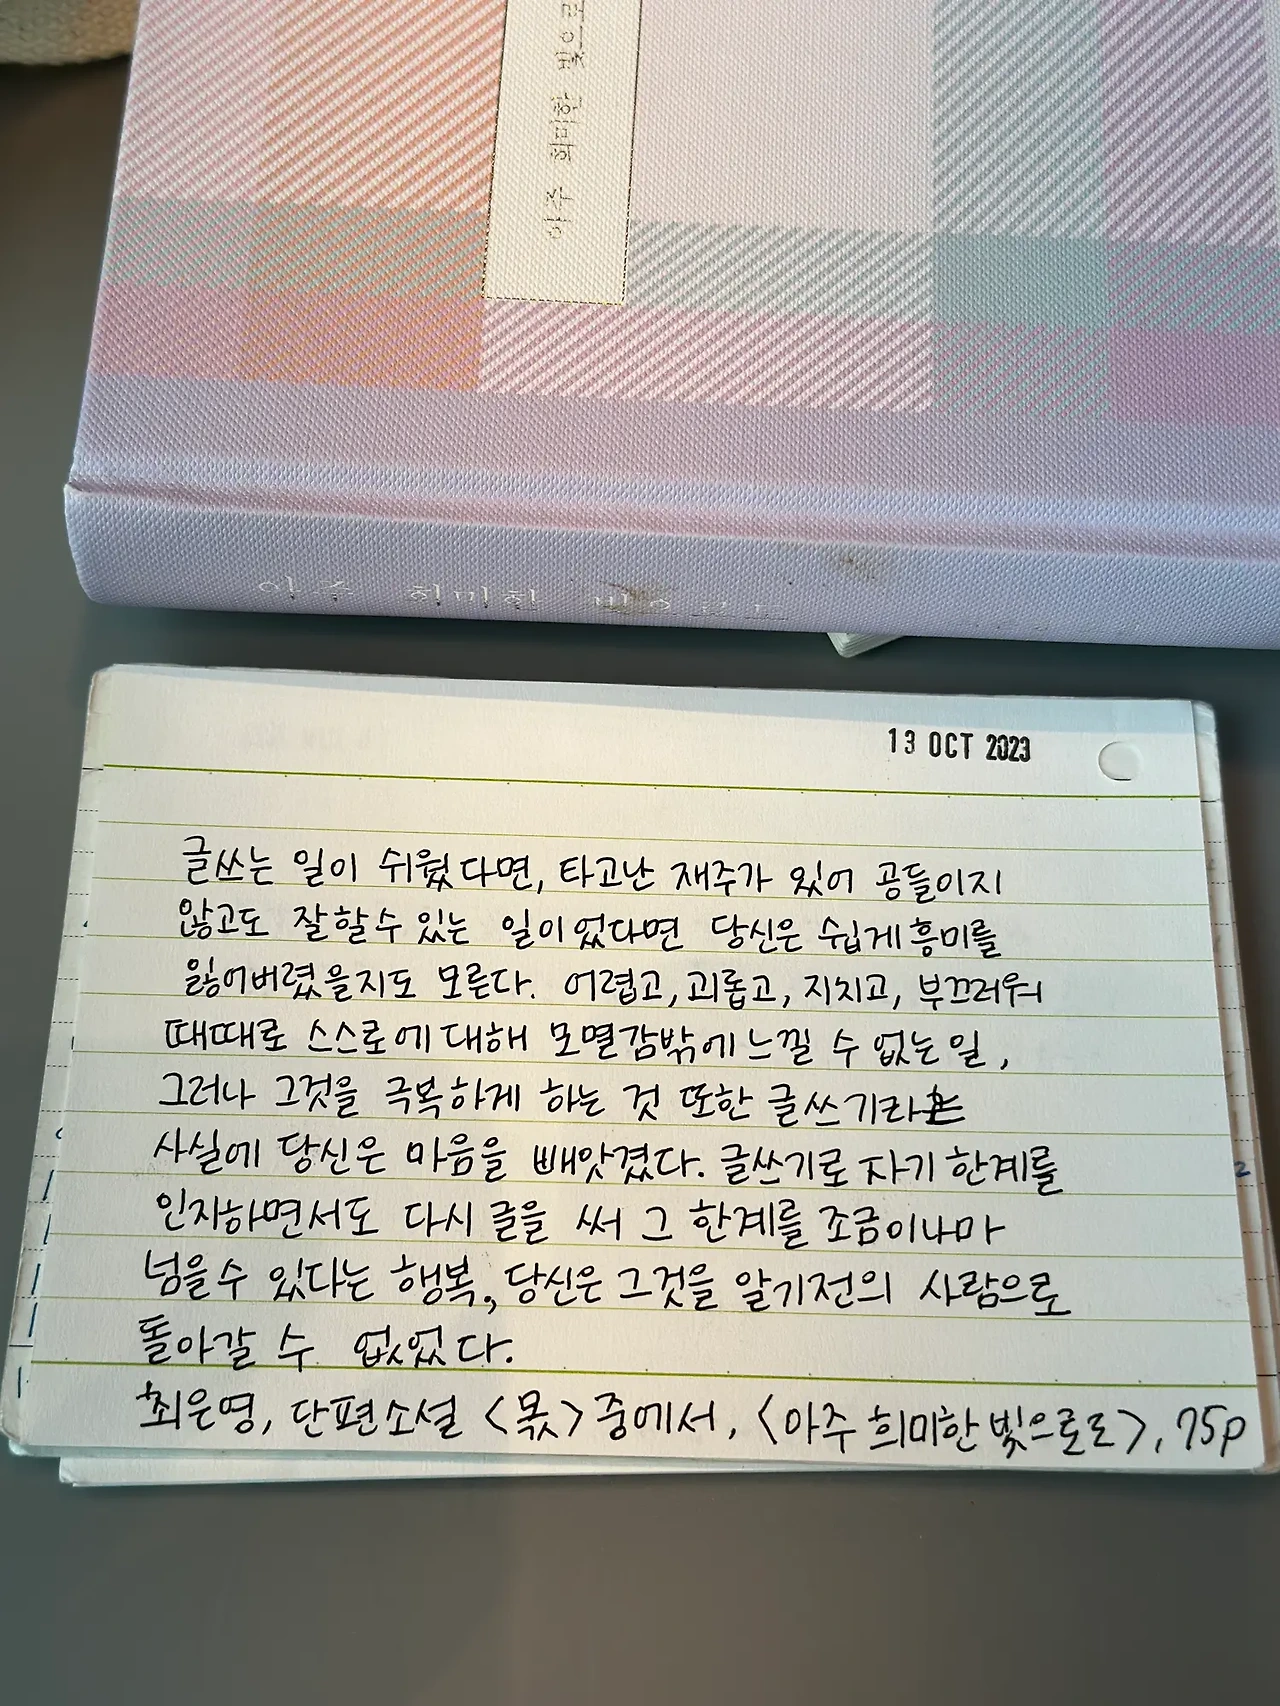 아주 희미한 빛으로
아주 희미한 빛으로도
13 OCT 2023
글쓰는 일이 쉬웠다면, 타고난 재주가 있어 공들이지
않고도 잘할 수 있는 일이었다면 당신은 쉽게 흥미를
잃어버렸을지도 모른다. 어렵고, 괴롭고, 지치고, 부끄러워
때때로 스스로에 대해 모멸감밖에 느낄 수 없는 일,
그러나 그것을 극복하게 하는 것 또한 글쓰기라는
사실에 당신은 마음을 빼앗겼다. 글쓰기로 자기 한계를
인지하면서도 다시 글을 써 그 한계를 조금이나마
넘을 수 있다는 행복, 당신은 그것을 알기 전의 사람으로
돌아갈 수 없었다.
최은영, 단편소설 <몫> 중에서, <아주 희미한 빛으로도>, 75p